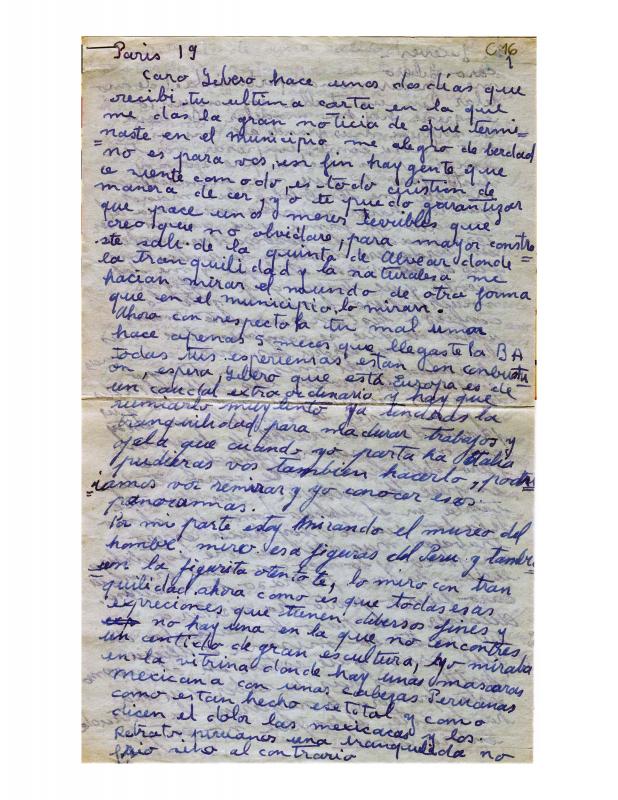 Paris 19
C 16
1
Caro Libero hace unos dos dias que
recibi tu ultima carta en la que
me das la gran noticia de que termi=
naste en el municipio me alegro de berdad
no es para vos, en fin hay gente que
se siente comodo, es todo qüistion de
manera de cer, y o te puedo garantizar
que pace unos meses terribles que
creo que no olvidare, para mayor constra=
ste sali de la quinta de Alvear donde
la tranquilidad y la naturalesa me
hacian mirar el mundo de otra forma
que en el municipio lo miran.
Ahora con respecto la tu mal umor
hace apenas 5 meces que llegaste la BA
todas tus esperiensias estan en conbusti
on, espera, Libero que está Europa es de
un caudal extraordinario y hay que
rumiarlo muy lento ya tendras la
tranquilidad para madurar trabajos y
ojala que cuando yo parta ha Italia
pudieras vos tambien hacerlo, podri
=amos vos remirar y yo conocer esos
panoramas.
Por mi parte estoy mirando el museo del
hombre. miro esa figuras del Peru y tambi=
=en la figurita otentote, lo miro con tran
quilidad ahora como es que todas esas
expreciones que tienen diversos fines y
no hay una en la que no encontres
un centido de gran escultura, yo miraba
en la vitrina donde hay unas mascaras
mexicana con unas cabezas Peruanas
como estan hecho ese total y como
dicen el dolor las mexicacas y los
Retratos peruanos una tranquilida no
frio sino al contrario